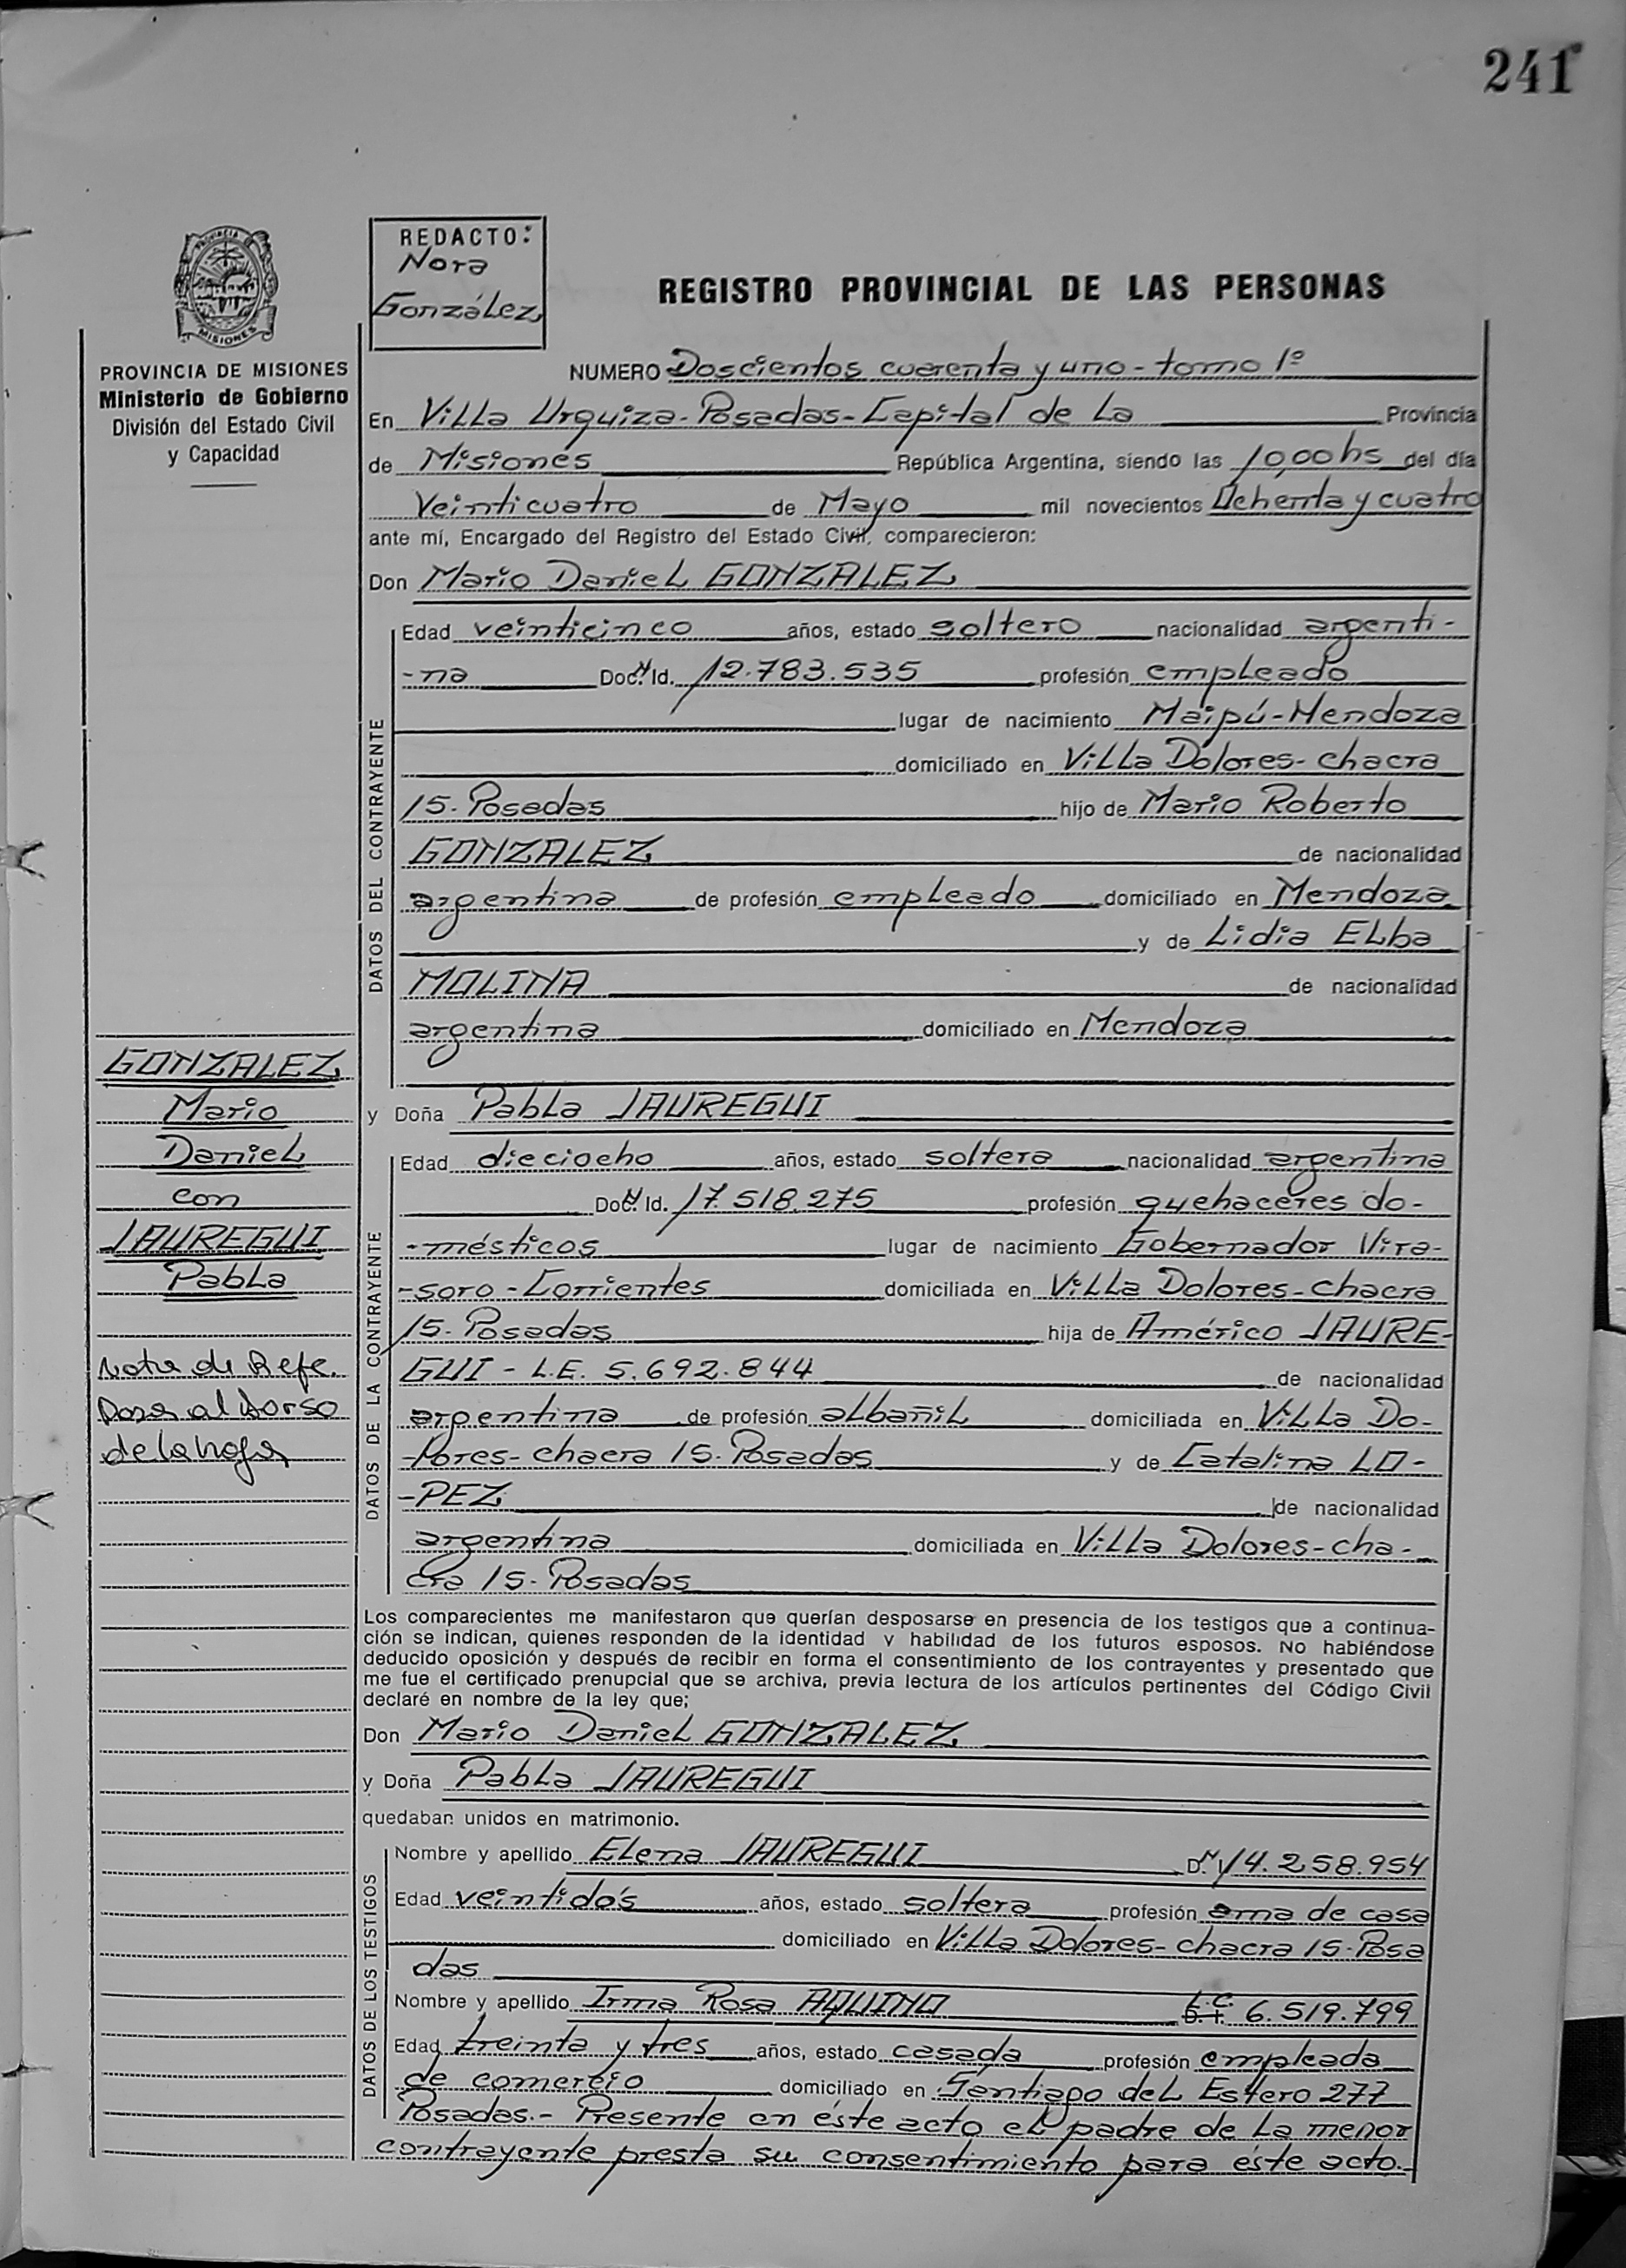 241
REDACTO:
Nora
González
REGISTRO PROVINCIAL DE LAS PERSONAS
PROVINCIA DE MISIONES
Ministerio de Gobierno
División del Estado Civil
y Capacidad
NUMERO Doscientos cuarenta y uno - tomo 1º
En Villa Urquiza - Posadas - Capital de La Provincia
de Misiones República Argentina, siendo las 10,00 hs del día
Veinticuatro de Mayo mil novecientos Ochenta y cuatro
ante mí, Encargado del Registro del Estado Civil, comparecieron:
Don Mario Daniel GONZALEZ
DATOS DEL CONTRAYENTE
Edad veinticinco años, estado soltero nacionalidad argenti-
-na Doc. Id. 12.783.535 profesión empleado
lugar de nacimiento Maipú - Mendoza
domiciliado en Villa Dolores - chacra
15 - Posadas hijo de Mario Roberto
GONZALEZ de nacionalidad
argentina de profesión empleado domiciliado en Mendoza
y de Lidia Elba
MOLINA de nacionalidad
argentina domiciliado en Mendoza
y Doña Pabla JAUREGUI
DATOS DE LA CONTRAYENTE
Edad dieciocho años, estado soltera nacionalidad argentina
Doc. Id. 17.518.275 profesión quehaceres do-
-mésticos lugar de nacimiento Gobernador Vira-
-soro - Corrientes domiciliada en Villa Dolores - chacra
15 - Posadas hija de Américo JAURE-
GUI - L.E. 5.692.844 de nacionalidad
argentina de profesión albañil domiciliada en Villa Do-
-lores - chacra 15 - Posadas y de Catalina LO-
-PEZ de nacionalidad
argentina domiciliada en Villa Dolores - cha-
cra 15 - Posadas
GONZALEZ
Mario
Daniel
con
JAUREGUI
Pabla
Nota de Refe.
Pasa al dorso
de la hoja
Los comparecientes me manifestaron que querían desposarse en presencia de los testigos que a continua-
ción se indican, quienes responden de la identidad y habilidad de los futuros esposos. No habiéndose
deducido oposición y después de recibir en forma el consentimiento de los contrayentes y presentado que
me fue el certificado prenupcial que se archiva, previa lectura de los artículos pertinentes del Código Civil
declaré en nombre de la ley que;
Don Mario Daniel GONZALEZ
y Doña Pabla JAUREGUI
quedaban unidos en matrimonio.
DATOS DE LOS TESTIGOS
Nombre y apellido Elena JAUREGUI D.N.I 14.258.954
Edad veintidós años, estado soltera profesión ama de casa
domiciliado en Villa Dolores - chacra 15 - Posa
das
Nombre y apellido Irma Rosa AQUINO L.C. 6.519.799
Edad treinta y tres años, estado casada profesión empleada
de comercio domiciliado en Santiago del Estero 277
Posadas.- Presente en éste acto el padre de La menor
contrayente presta su consentimiento para éste acto.-